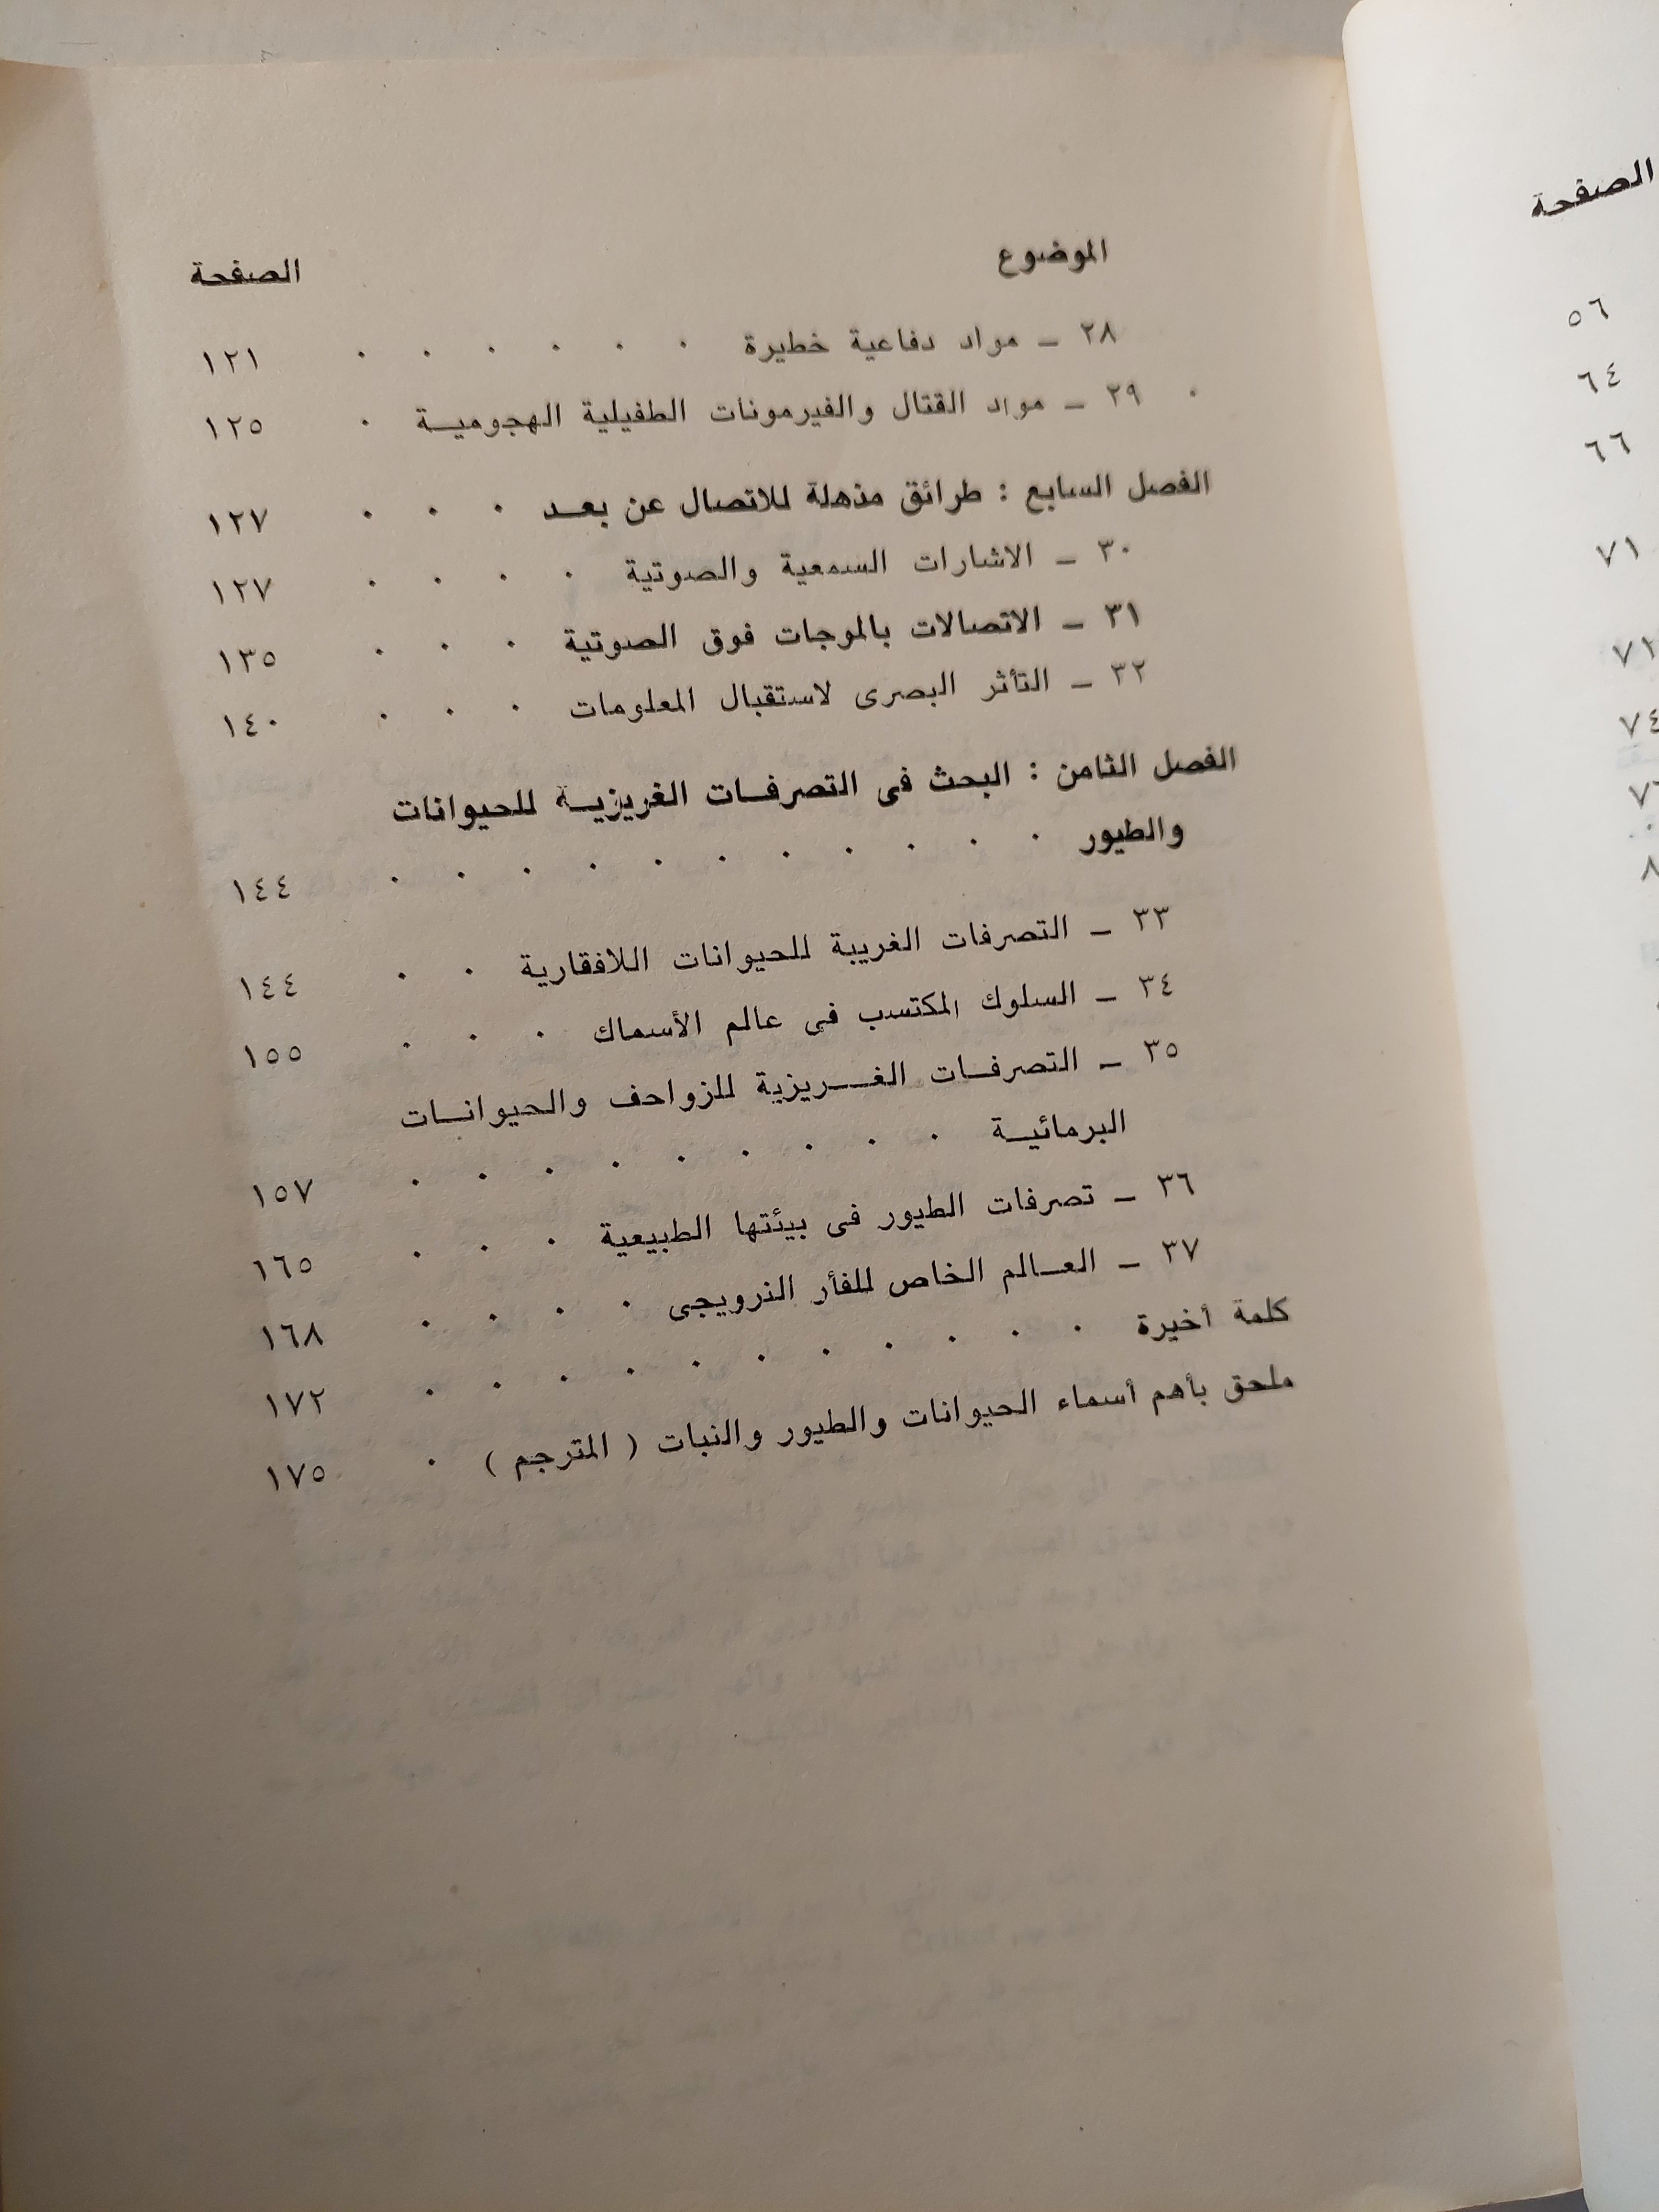 الموضوع الصفحة
٢٨ ــ مواد دفاعية خطيرة . . . . . . ١٢١
٢٩ ــ مواد القتال والفيرمونات الطفيلية الهجوميــة . ١٢٥
الفصل السابع : طرائق مذهلة للاتصال عن بعــد . . . ١٢٧
٣٠ ــ الاشارات السمعية والصوتية . . . . ١٢٧
٣١ ــ الاتصالات بالموجات فوق الصوتية . . . ١٣٥
٣٢ ــ التأثر البصرى لاستقبال المعلومات . . . ١٤٠
الفصل الثامن : البحث فى التصرفــات الغريزيــة للحيوانات
والطيور . . . . . . . . . . . ١٤٤
٣٣ ــ التصرفات الغريبة للحيوانات اللافقارية . . ١٤٤
٣٤ ــ السلوك المكتسب فى عالم الأسماك . . . ١٥٥
٣٥ ــ التصرفــات الغـــريزية للزواحف والحيوانــات
البرمائيــة . . . . . . . . . ١٥٧
٣٦ ــ تصرفات الطيور فى بيئتها الطبيعية . . . ١٦٥
٣٧ ــ العــالم الخاص للفأر النرويجى . . . . ١٦٨
كلمة أخيرة . . . . . . . . . . . ١٧٢
ملحق بأهم أسماء الحيوانات والطيور والنبات ( المترجم ) . ١٧٥
الصفحة
٥٦
٦٤
٦٦
٧١